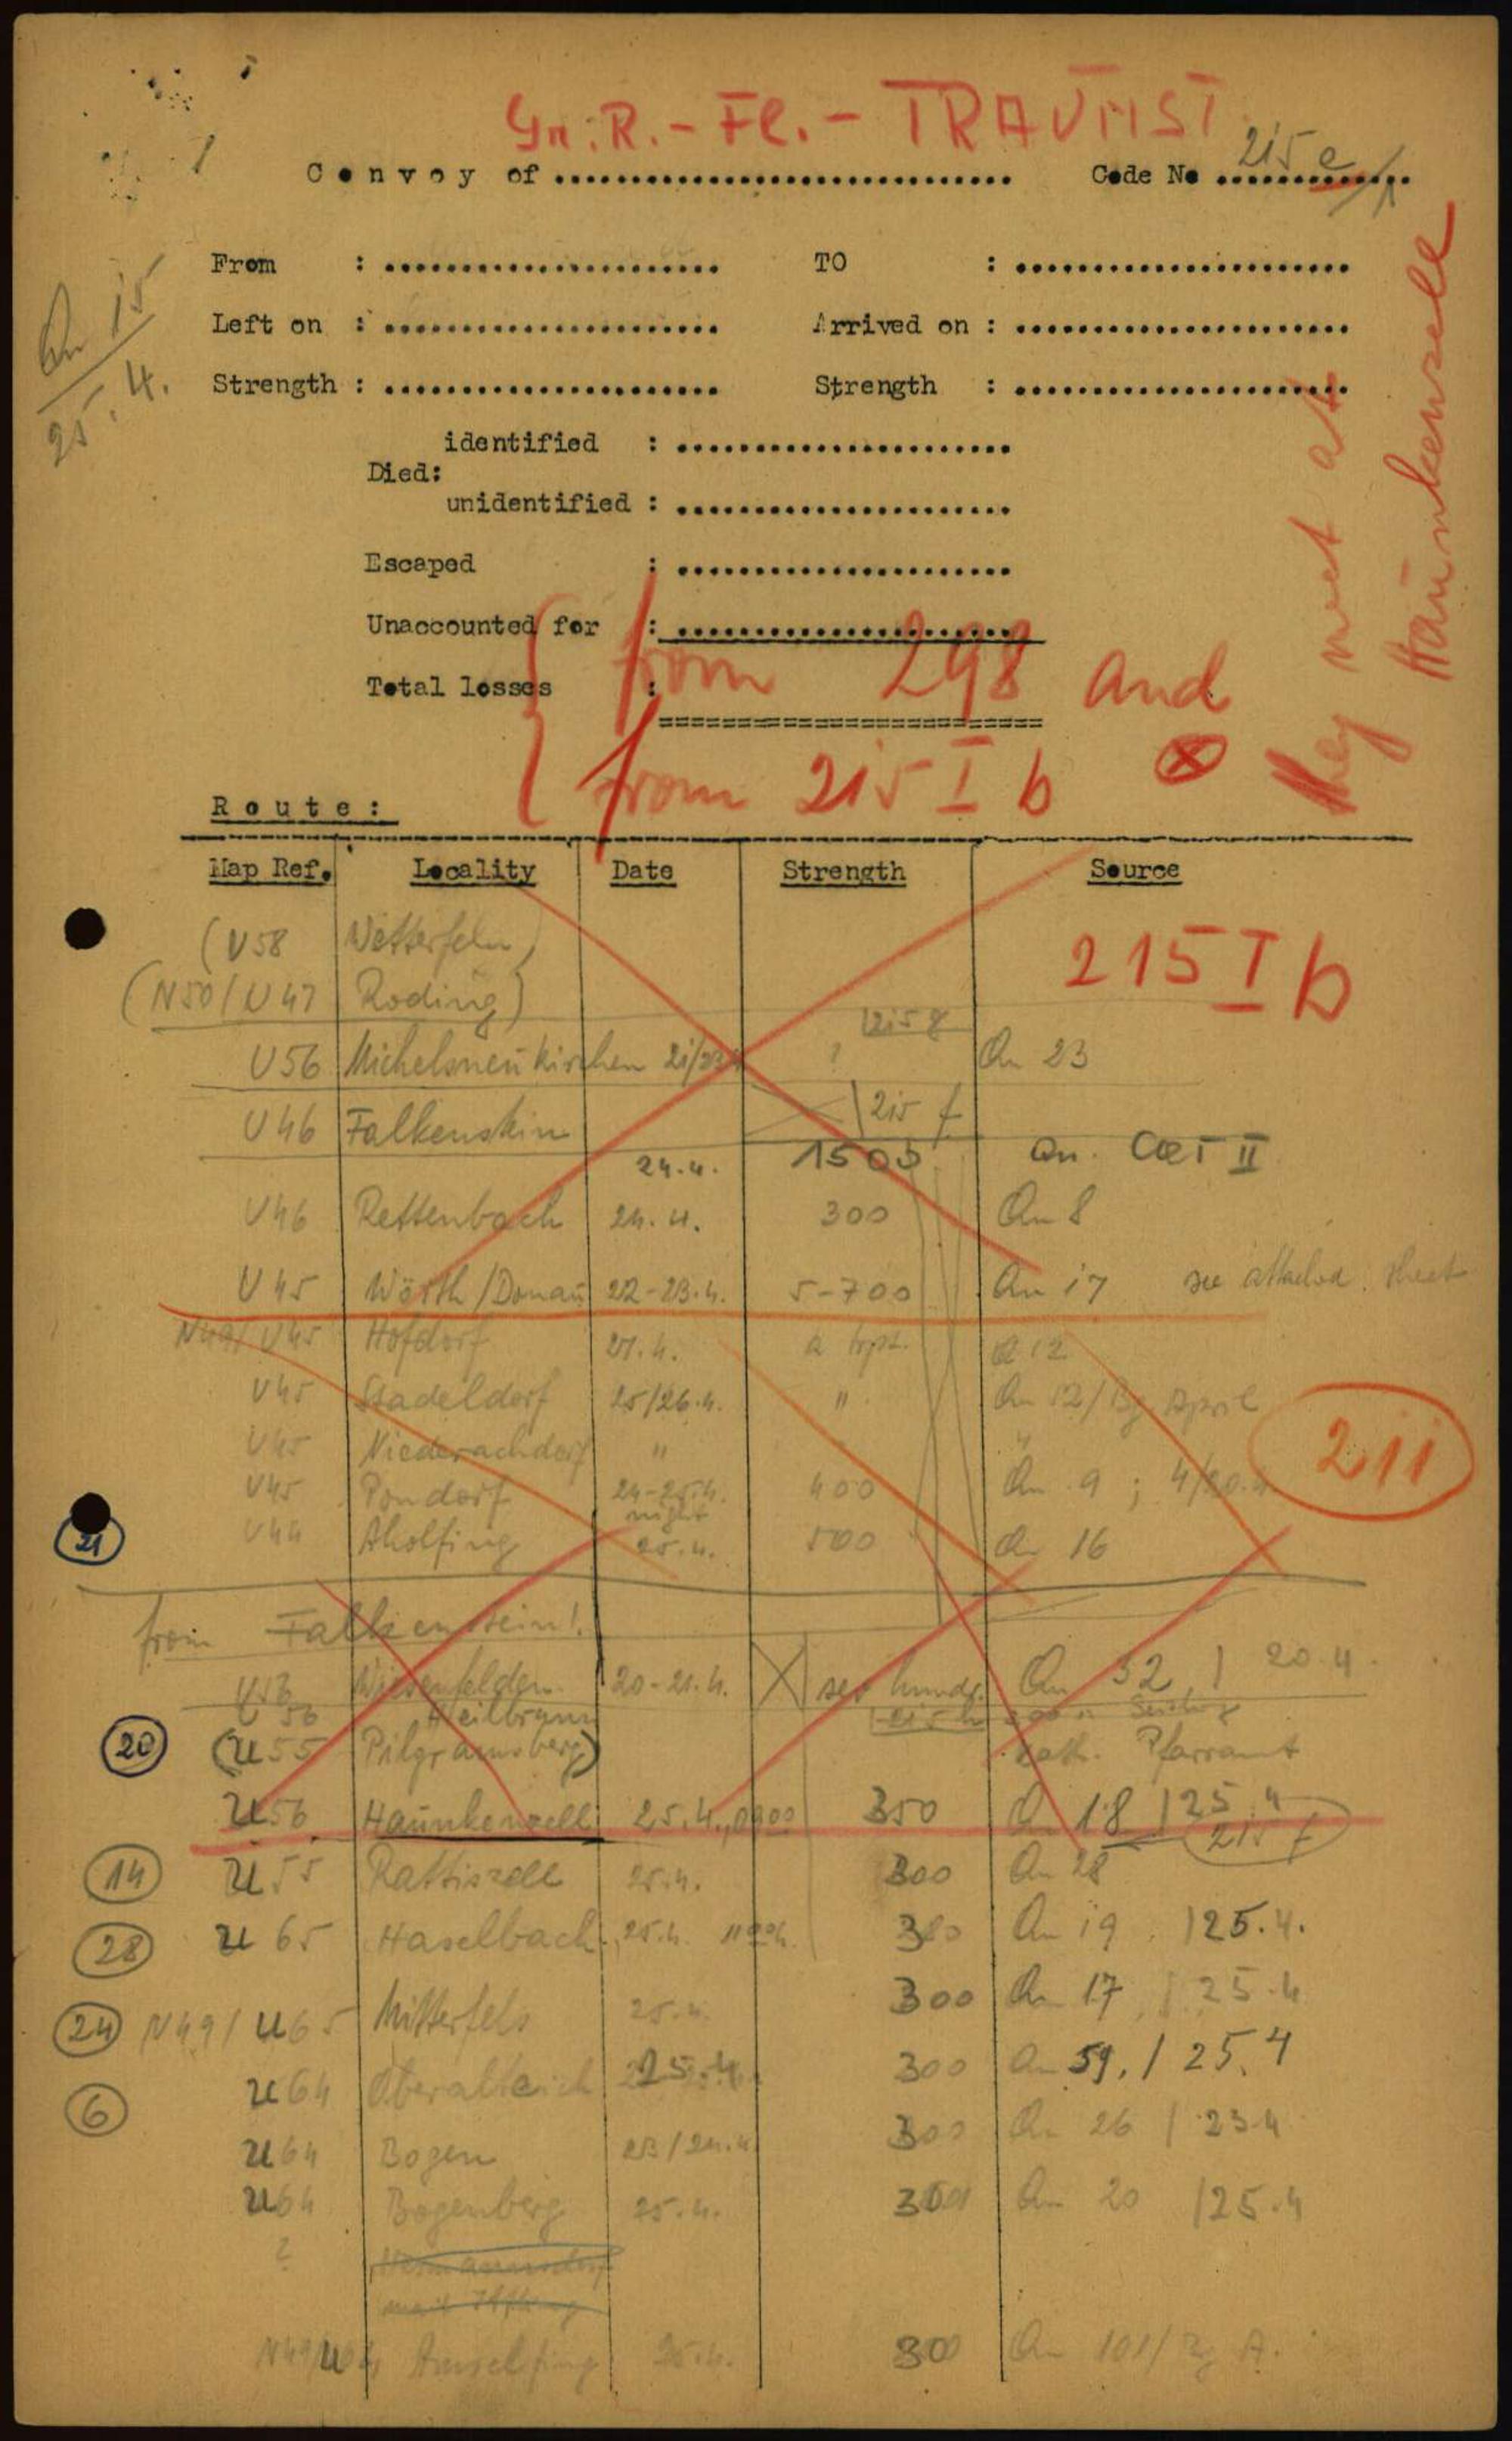 Gn:R.-Fl.- TRAUNST
Convoy of .............................. Code No 215 e
From : ...................... TO : ......................
Left on : ...................... Arrived on : ......................
Strength : ...................... Strength : ......................
An 15
25.4.
identified : ......................
Died:
unidentified : ......................
Escaped : ......................
Unaccounted for : ......................
Total losses :
========================
{ from 298 and
{ from 215 I b ⊗
they met at
Haunkenzell
Route:
Map Ref. Locality Date Strength Source
(U58 Wetterfeln)
(N50/U47 Roding)
215 I b
215 g
U56 Michelsneukirchen 21/23 ? An 23
U46 Falkenstein 215 f
24.4. 1500 An. Cct II
U46 Rettenbach 24.4. 300 An 8
U45 Wörth/Donau 22-23.4. 5-700 An 17 see attached sheet
N49/U45 Hofdorf 21.4. a trpt. Q 12
U45 Stadeldorf 25/26.4. " An 12/ April
U45 Niederachdorf " "
U45 Pondorf 24-25.4. 400 An 9; 4/20.4
night
211
21
U44 Aholfing 25.4. 500 An 16
from Falkenstein!
U56 Wiesenfelden 20-21.4. sev hundr. An 52 / 20.4.
U56 Heilbrunn 215 h
20 (U55 Pilgramsberg) Kath. Pfarramt
U56 Haunkenzell 25.4., 0900 350 An 18 / 25.4
215 f
14 U55 Rattiszell 25.4. 300 An 28
28 U65 Haselbach 25.4. 1100h. 300 An 19 / 25.4.
24 N49/U65 Mitterfels 25.4. 300 An 17 / 25.4
U64 Oberalteich 25.4. 300 An 59, / 25.4
6
U64 Bogen 23/24.4 300 An 26 / 23.4
U64 Bogenberg 25.4. 300 An 20 / 25.4
?
N49/U64 Amselfing 25.4. 300 An 101/